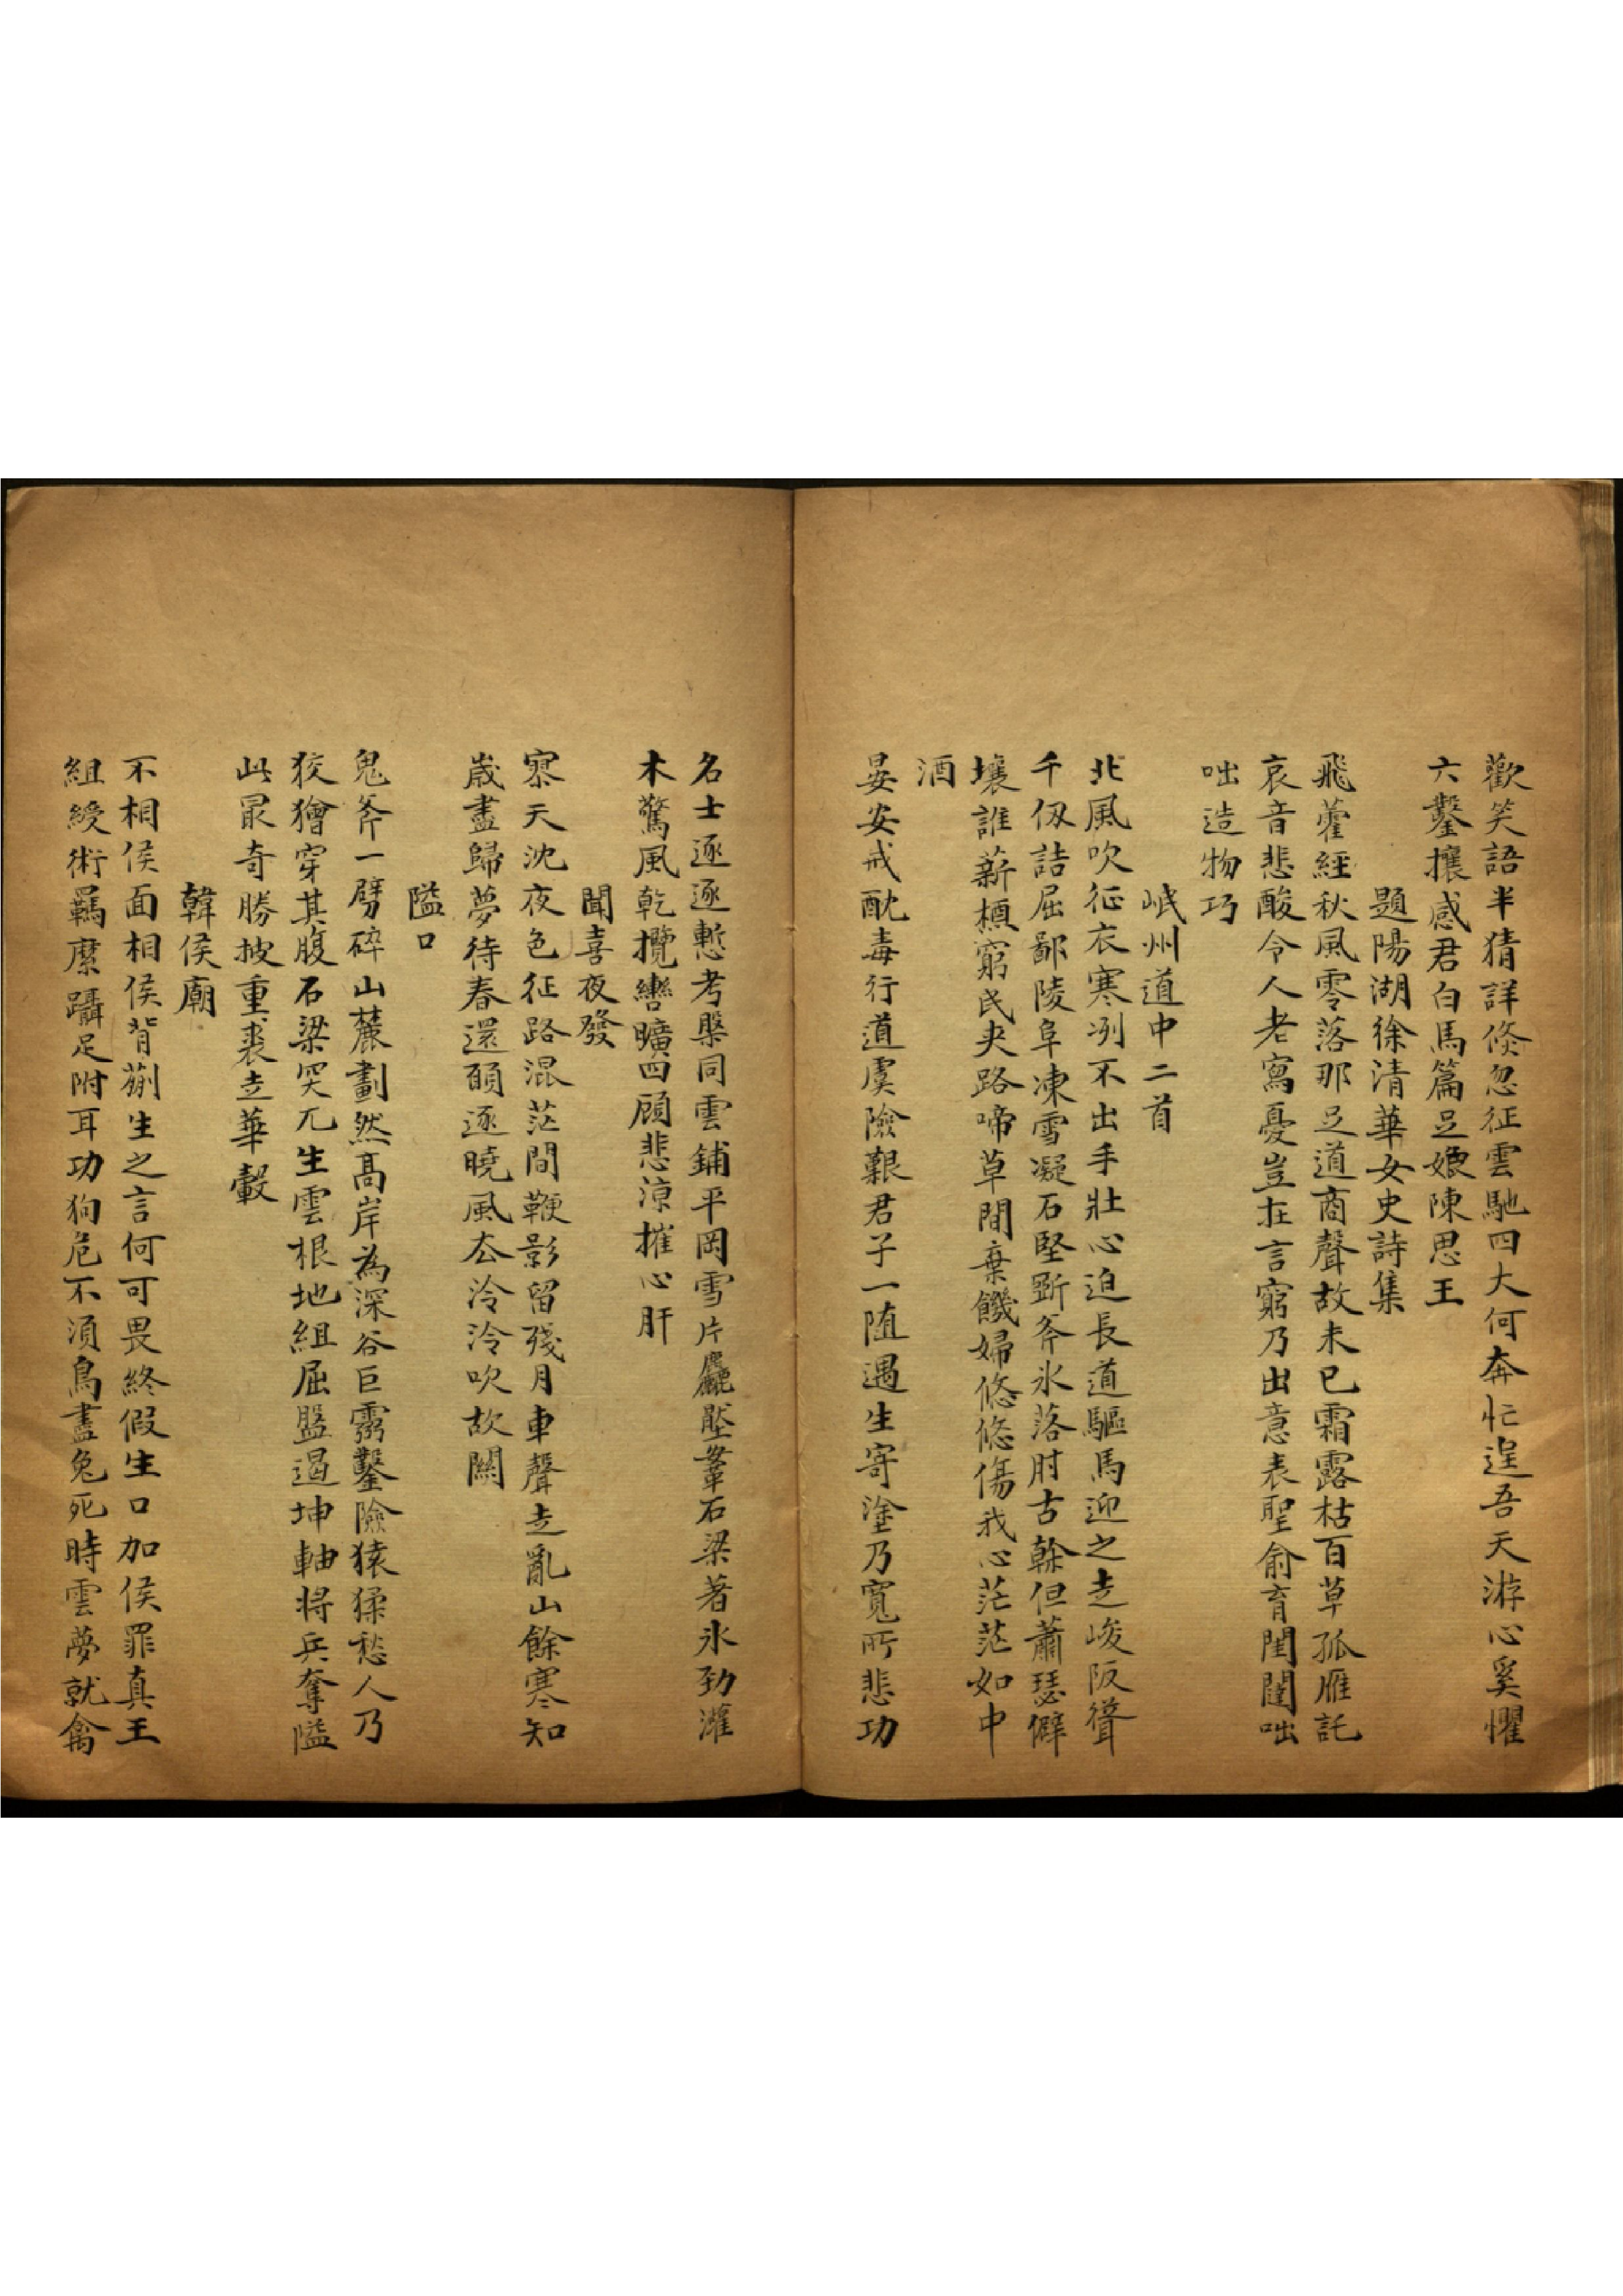 歡笑語半猜詳倐忽征雲馳四大何奔忙逞吾天游心奚懼
六鑿攘感君白馬篇足媲陳思王
題陽湖徐清華女史詩集
飛藿經秋風零落那足道商聲故未已霜露枯百草孤雁託
哀音悲酸令人老寫憂豈在言窮乃出意表聖俞育閨闥咄
咄造物巧
岷州道中二首
北風吹征衣寒冽不出手壯心迫長道驅馬迎之走峻阪聳
千仭詰屈鄙陵阜凍雪凝石堅斲斧氷落肘古榦但蕭瑟僻
壤誰薪槱窮民夾路啼草間棄饑婦悠悠傷我心茫茫如中
酒
晏安戒酖毒行道虞險艱君子一随遇生寄塗乃寬所悲功
名士逐逐慙考槃同雲鋪平岡雪片麤壓鞌石梁著氷勁灌
木驚風乾攬轡曠四顧悲涼摧心肝
聞喜夜發
寒天沈夜色征路混茫間鞭影留殘月車聲走亂山餘寒知
歲盡歸夢待春還頋逐曉風厺泠泠吹故關
隘口
鬼斧一劈碎山麓劃然髙岸為深谷巨靈鑿險猿猱愁人乃
狡獪穿其腹石梁突兀生雲根地組屈盤遏坤軸将兵奪隘
此最奇勝披重裘走華轂
韓侯廟
不相侯面相侯背蒯生之言何可畏終假生口加侯罪真王
組綬術羈縻躡足附耳功狗危不須鳥盡兔死時雲夢就禽